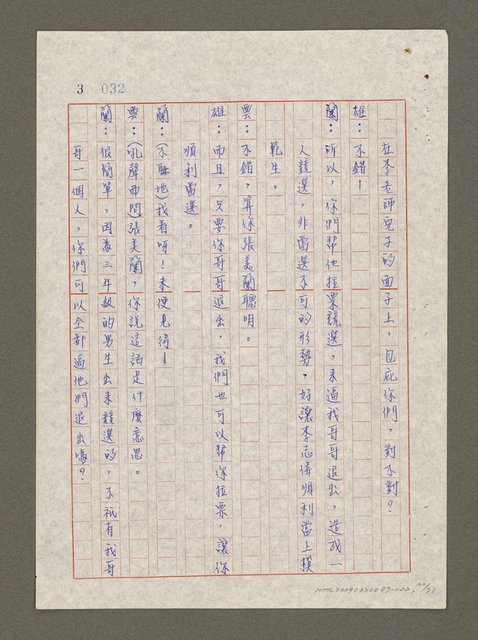 3 032
在李老師兒子的面子上，包庇你們，對不對？
雄：不錯！
蘭：所以，你們幫他拉票競選，來逼我哥哥退出，造成一
人競選，非當選不可的形勢，好讓李志偉順利當上模
範生。
雲：不錯，算你張美蘭聰明。
雄：而且，只要你哥哥退出，我們也可以幫你拉票，讓你
順利當選。
蘭：（不服地）我看呀！未便見得！
雲：（吼聲而問張美蘭，你說這話是什麼意思。
蘭：很簡單，因為三年級的男生出來競選的，不祇有我哥
哥一個人，你們可以全部逼他們退出嗎？